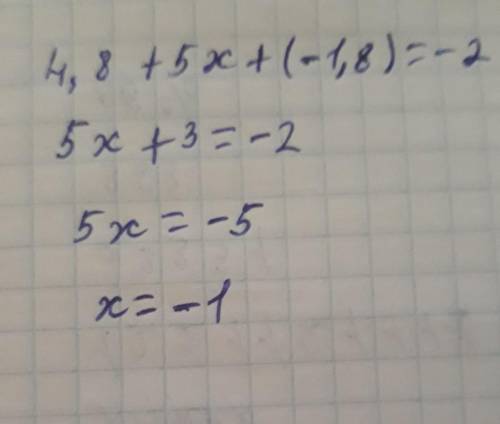 4,8 +5x+(-1,8)=-2
5x +3=-2
5x=-5
x=-1